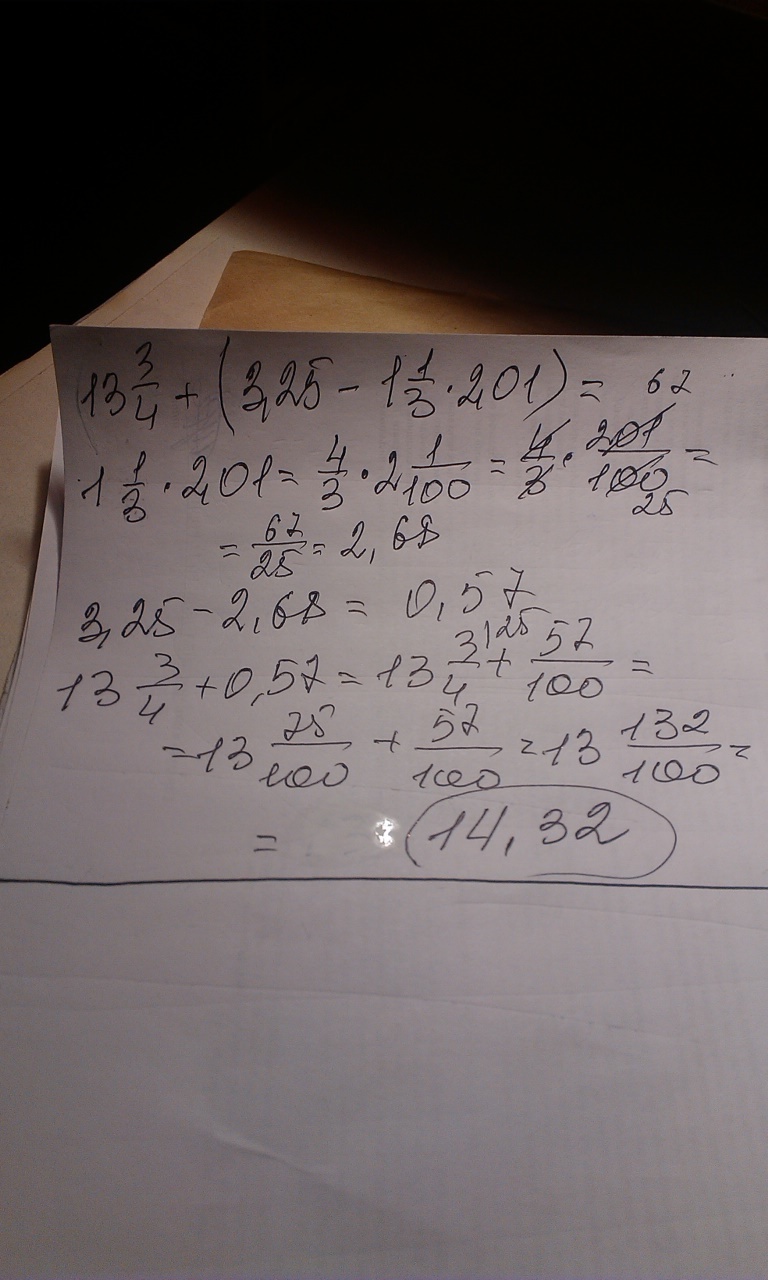 13 3/4 + (3,25 - 1 1/3 · 2,01) = 67
1 1/3 · 2,01 = 4/3 · 2 1/100 = 4/3 · 201/100 =
25
= 67/25 = 2,68
3,25 - 2,68 = 0,57
13 3/4 + 0,57 = 13 3/4 |25 + 57/100 =
= 13 75/100 + 57/100 = 13 132/100 =
= 14,32